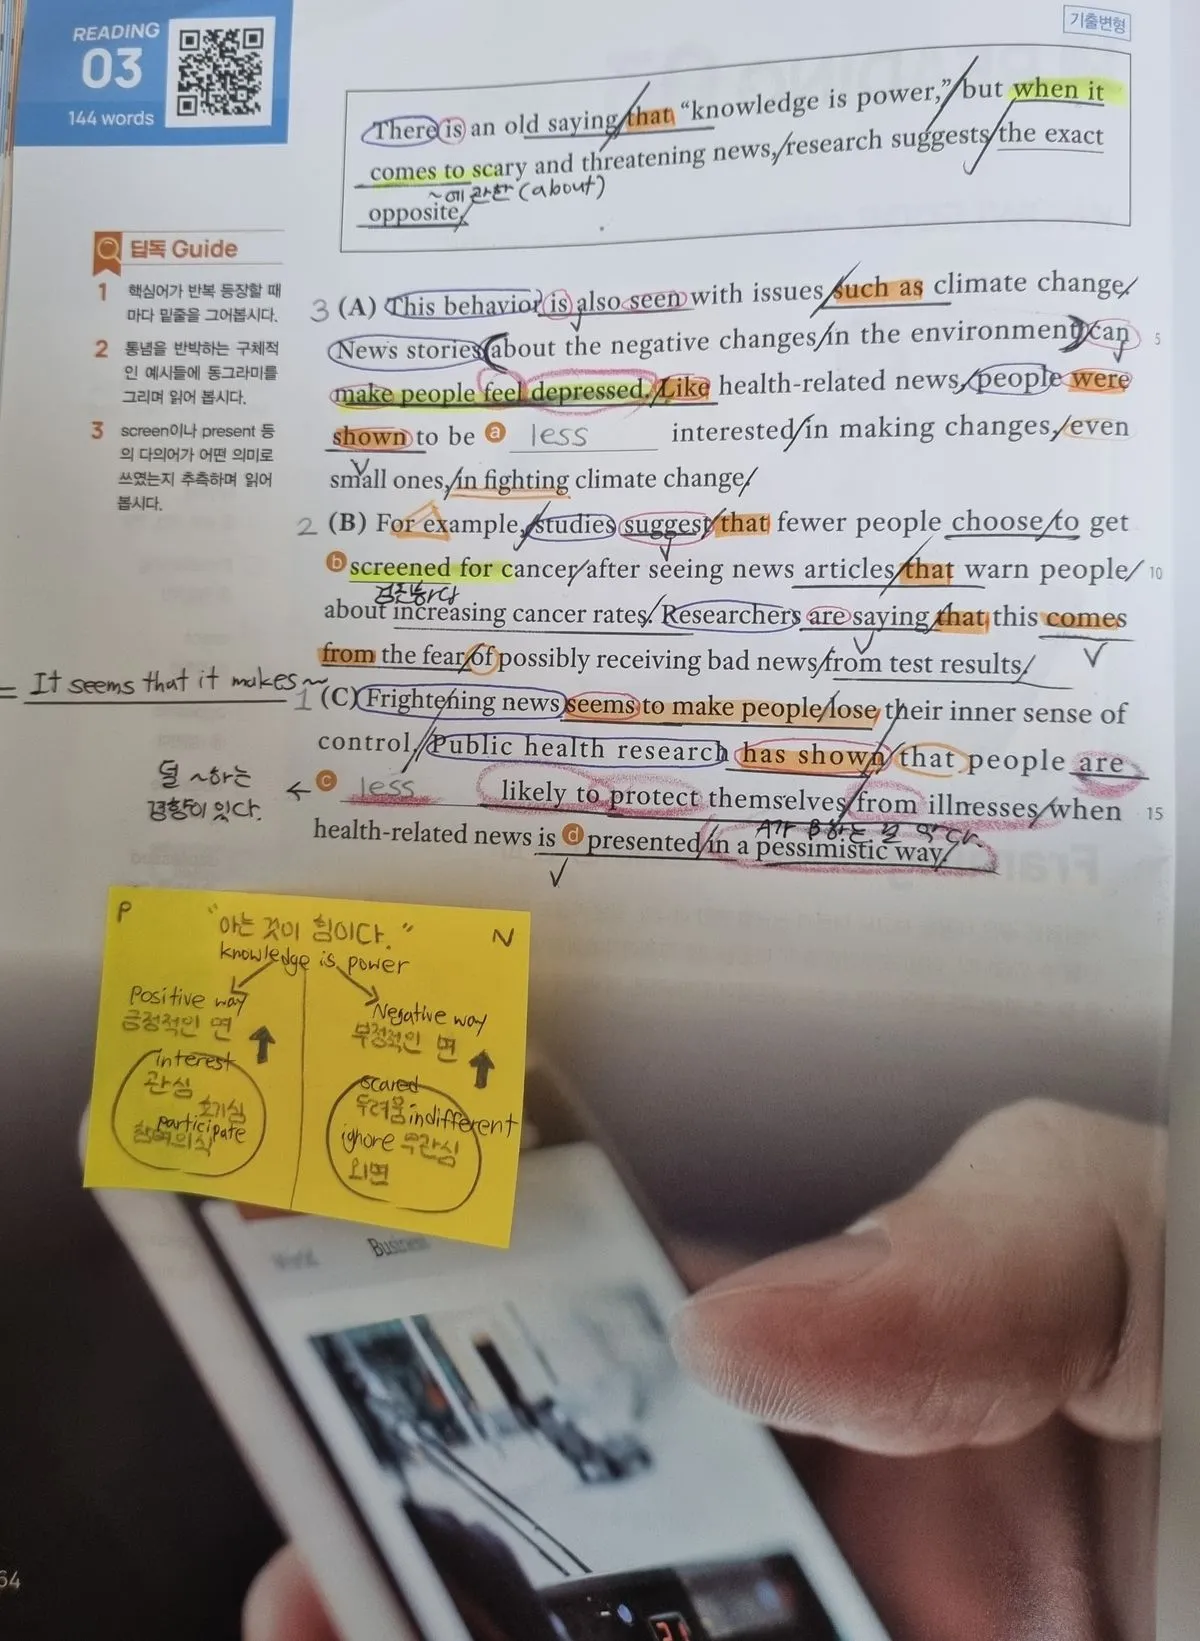 READING
03
144 words
기출변형
There is an old saying that “knowledge is power,” but when it
comes to scary and threatening news, research suggests the exact
~에 관한 (about)
opposite.
딥독 Guide
1 핵심어가 반복 등장할 때
마다 밑줄을 그어봅시다.
2 통념을 반박하는 구체적
인 예시들에 동그라미를
그리며 읽어 봅시다.
3 screen이나 present 등
의 다의어가 어떤 의미로
쓰였는지 추측하며 읽어
봅시다.
3 (A) This behavior is also seen with issues such as climate change.
News stories about the negative changes in the environment can 5
make people feel depressed. Like health-related news, people were
shown to be ⓐ less interested in making changes, even
small ones, in fighting climate change.
2 (B) For example, studies suggest that fewer people choose to get
ⓑ screened for cancer after seeing news articles that warn people 10
검진하다
about increasing cancer rates. Researchers are saying that this comes
from the fear of possibly receiving bad news from test results.
= It seems that it makes~
1 (C) Frightening news seems to make people lose their inner sense of
control. Public health research has shown that people are
덜 ~하는
경향이 있다.
← ⓒ less likely to protect themselves from illnesses when 15
A가 B하는 걸 막다.
health-related news is ⓓ presented in a pessimistic way.
P "아는 것이 힘이다." N
knowledge is power
Positive way
긍정적인 면
interest
관심
호기심
participate
참여의식
Negative way
부정적인 면
scared
두려움 indifferent
ignore 무관심
외면
World Business
64